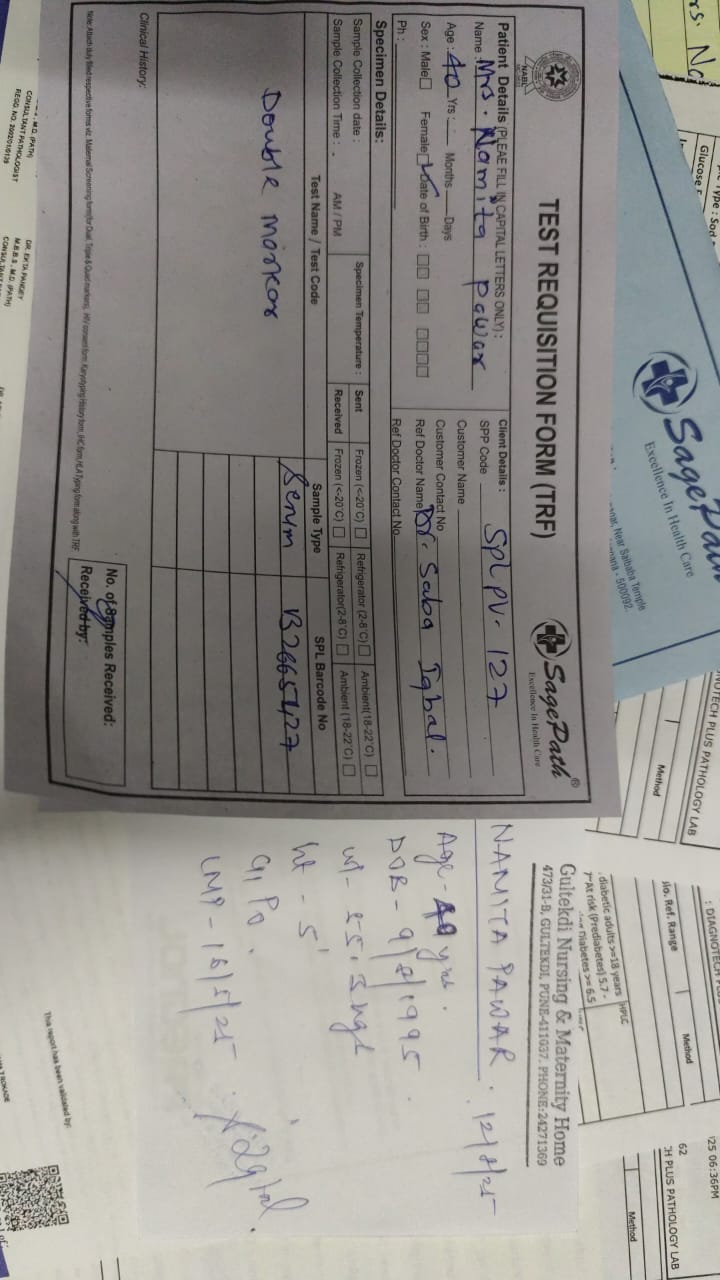 TEST REQUISITION FORM (TRF)
NABL
SagePath®
Excellence In Health Care
Patient Details (PLEAE FILL IN CAPITAL LETTERS ONLY) :
Name : Mrs. Namita pawar
Age : 40 Yrs : Months Days
Sex : Male Female Date of Birth :
Ph :
Client Details :
SPP Code SPL PV- 127
Customer Name
Customer Contact No
Ref Doctor Name Dr. Saba Iqbal.
Ref Doctor Contact No
Specimen Details:
Sample Collection date : Specimen Temperature : Sent Frozen (<-20°C) Refrigerator (2-8°C) Ambient(18-22°C)
Sample Collection Time : AM / PM Received Frozen (<-20°C) Refrigerator(2-8°C) Ambient (18-22°C)
Test Name / Test Code Sample Type SPL Barcode No
Double marker Serum B2665427
Clinical History:
No. of Samples Received:
Received by:
Note: Attach duly filled respective forms viz. Maternal Screening form(for Dual, Triple & Quad markers), HIV consent form, Karyotyping History form, IHC form, HLA Typing form along with TRF
Gultekdi Nursing & Maternity Home
473/31-B, GULTEKDI, PUNE-411037. PHONE:24271369
NAMITA PAWAR.
Age - yrs.
wt - 55.3kgs
ht - 5'
G1 P0.
SagePath
Excellence In Health Care
Near Saibaba Temple
- 500092.
rs. No
Type : Sod
Glucose
TECH PLUS PATHOLOGY LAB
Method
: DIAGNOTECH PLU
Bio. Ref. Range Method
diabetic adults >=18 years HPLC
At risk (Prediabetes) 5.7 -
Diabetes >= 6.5
25 06:36PM
62
CH PLUS PATHOLOGY LAB
Method
M.D. (PATH)
CONSULTANT PATHOLOGIST
REGD. NO. 2002/01/0135
DR. EKTA PANDEY
M.B.B.S ; M.D. (PATH)
This report has been validated by: